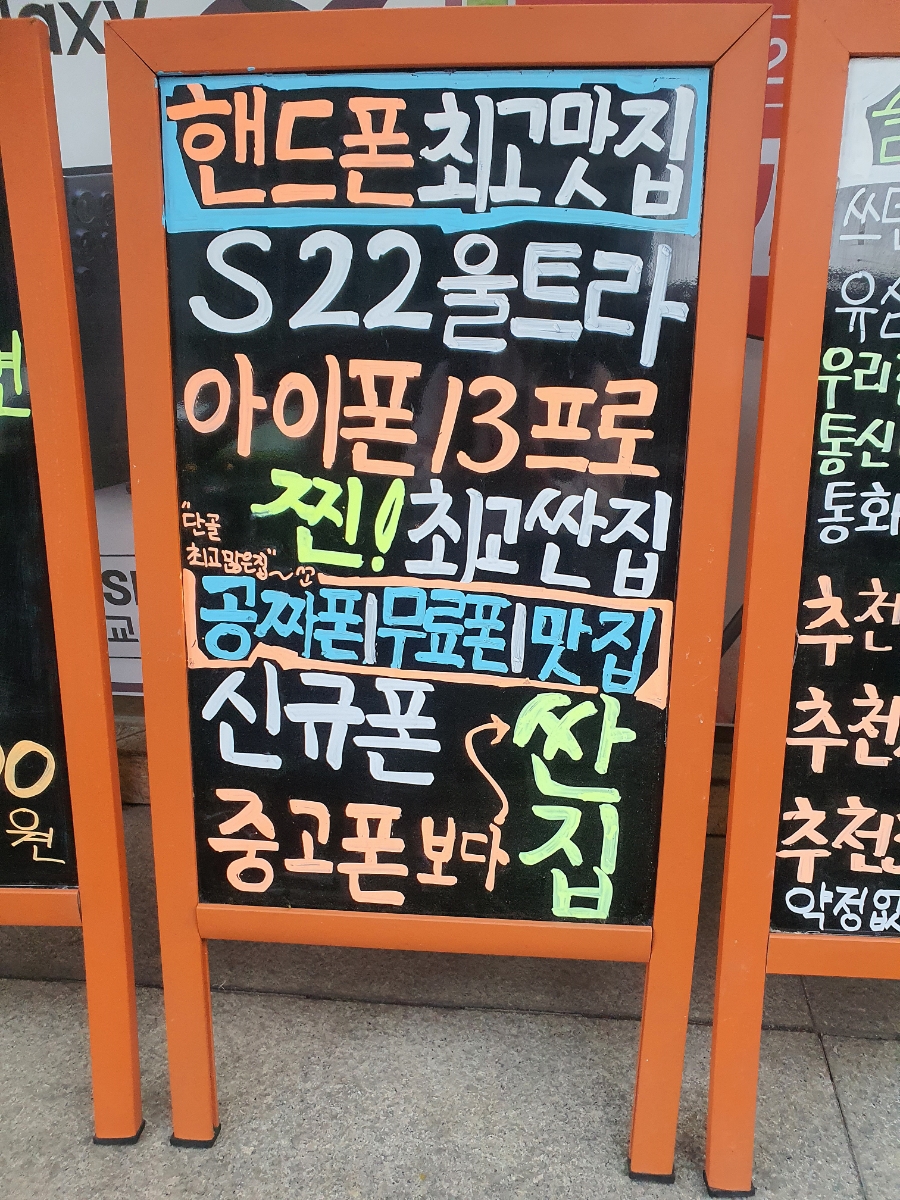 핸드폰 최고맛집
S22울트라
아이폰13프로
찐! 최고싼집
"단골
최고많은집"~
공짜폰|무료폰|맛집
신규폰
중고폰 보다
싼
집
00
원
쓰던
유심
우리
통신
통화
추천
추천
추천
약정없
axy